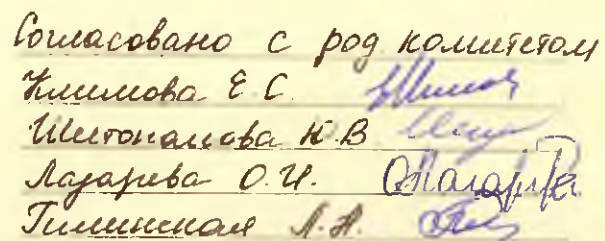 Согласовано с род комитетом
Климова Е С.
Шестопалова Н.В
Лазарева О.И.
Гилинская Л.Н.